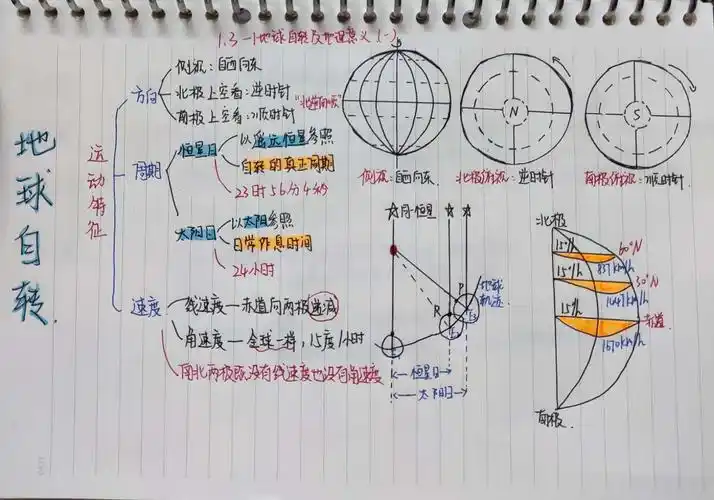 1.3-1地球自转及地理意义(一)
地球自转.
运动特征
方向
侧视:自西向东
北极上空看:逆时针
南极上空看:顺时针
"北逆南顺"
周期
恒星日
以遥远恒星参照
自转的真正周期
23时56分4秒
太阳日
以太阳参照
日常作息时间
24小时
速度
线速度—赤道向两极递减
角速度—全球一样,15度/小时
南北两极既没有线速度也没有角速度
N
S
侧视:自西向东.
北极俯视:逆时针
南极俯视:顺时针.
同一恒星
P
R
E1
E2
E3
地球轨迹.
恒星日
太阳日
北极
15°/h
60°N
837km/h
15°/h
30°N
1447km/h
15°/h
赤道
1670km/h
南极.